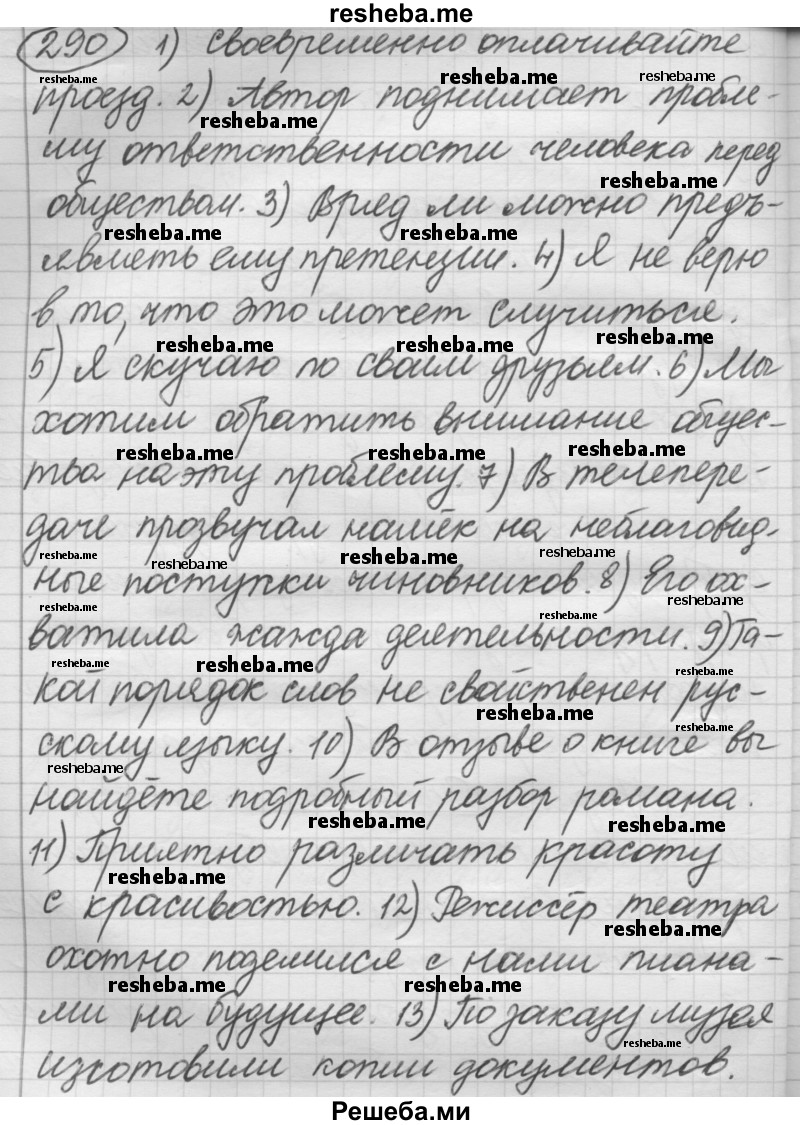 resheba.me
290 1) Своевременно оплачивайте
resheba.me resheba.me resheba.me
проезд. 2) Автор поднимает пробле-
resheba.me
му ответственности человека перед
resheba.me
обществом. 3) Вряд ли можно предъ-
resheba.me resheba.me
являть ему претензии. 4) Я не верю
в то, что это может случиться.
resheba.me resheba.me resheba.me
5) Я скучаю по своим друзьям. 6) Мы
хотим обратить внимание общес-
resheba.me resheba.me resheba.me
тва на эту проблему. 7) В телепере-
даче прозвучал намёк на неблаговид-
resheba.me resheba.me resheba.me resheba.me
ные поступки чиновников. 8) Его ох-
resheba.me resheba.me resheba.me
ватила жажда деятельности. 9) Та-
resheba.me resheba.me resheba.me
кой порядок слов не свойственен рус-
resheba.me resheba.me
скому языку. 10) В отзыве о книге вы
resheba.me
найдёте подробный разбор романа.
resheba.me resheba.me
11) Приятно различать красоту
resheba.me
с красивостью. 12) Режиссёр театра
resheba.me
охотно поделился с нами плана-
resheba.me resheba.me
ми на будущее. 13) По заказу музея
resheba.me
изготовили копии документов.
Решеба.ми